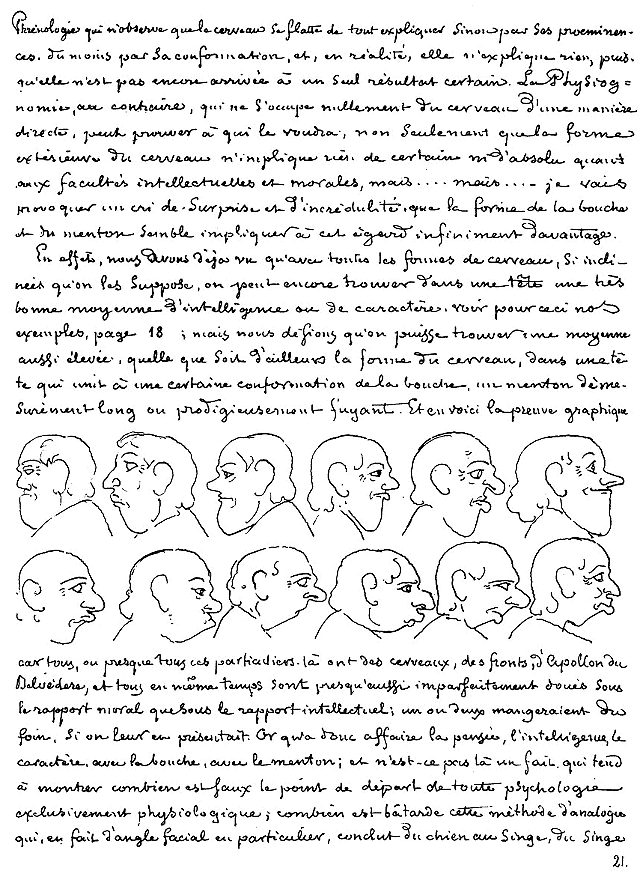 Phrénologie qui n'observe que le cerveau se flatte de tout expliquer sinon par ses proéminen-
ces, du moins par sa conformation, et, en réalité, elle n'explique rien, puis-
qu'elle n'est pas encore arrivée à un seul résultat certain. La Physiog-
nomie, au contraire, qui ne s'occupe nullement du cerveau d'une manière
directe, peut prouver à qui le voudra, non seulement que la forme
extérieure du cerveau n'implique rien de certain ni d'absolu quant
aux facultés intellectuelles et morales, mais.... mais.... je vais
provoquer un cri de surprise et d'incrédulité, que la forme de la bouche
et du menton semble impliquer à cet égard infiniment davantage.
En effet, nous avons déjà vu qu'avec toutes les formes de cerveau, si incli-
nées qu'on les suppose, on peut encore trouver dans une tête une très
bonne moyenne d'intelligence ou de caractère, voir pour ceci nos
exemples, page 18 ; mais nous défions qu'on puisse trouver une moyenne
aussi élevée, quelle que soit d'ailleurs la forme du cerveau, dans une tê-
te qui unit à une certaine conformation de la bouche, un menton déme-
surément long ou prodigieusement fuyant. Et en voici la preuve graphique
car tous, ou presque tous ces particuliers-là ont des cerveaux, des fronts, d'Apollon du
Belvédère, et tous en même temps sont presqu'aussi imparfaitement doués sous
le rapport moral que sous le rapport intellectuel; un ou deux mangeraient du
foin, si on leur en présentait. Or qu'a donc affaire la pensée, l'intelligence, le
caractère, avec la bouche, avec le menton; et n'est-ce pas là un fait qui tend
à montrer combien est faux le point de départ de toute psychologie
exclusivement physiologique; combien est bâtarde cette méthode d'analogie
qui, en fait d'angle facial en particulier, conclut du chien au singe, du singe
21.